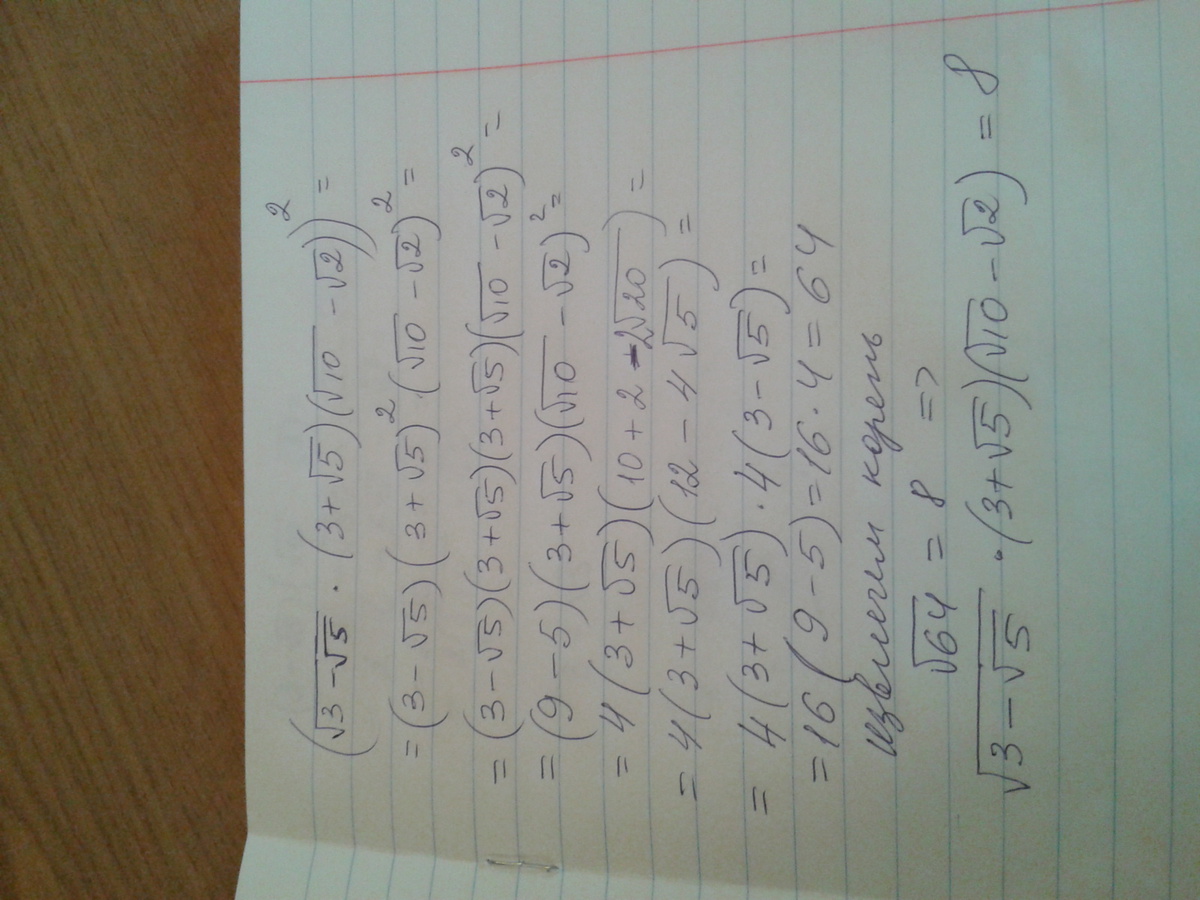 (√(3-√5) · (3+√5)(√10 - √2))² =
= (3-√5)(3+√5)²·(√10 -√2)² =
= (3-√5)(3+√5)(3+√5)(√10 -√2)² =
= (9-5)(3+√5)(√10 -√2)² =
= 4(3+√5)(10+2-2√20) =
= 4(3+√5)(12-4√5) =
= 4(3+√5)·4(3-√5) =
= 16(9-5) = 16·4 = 64
Извлечем корень
√64 = 8 =>
√(3-√5) · (3+√5)(√10 -√2) = 8